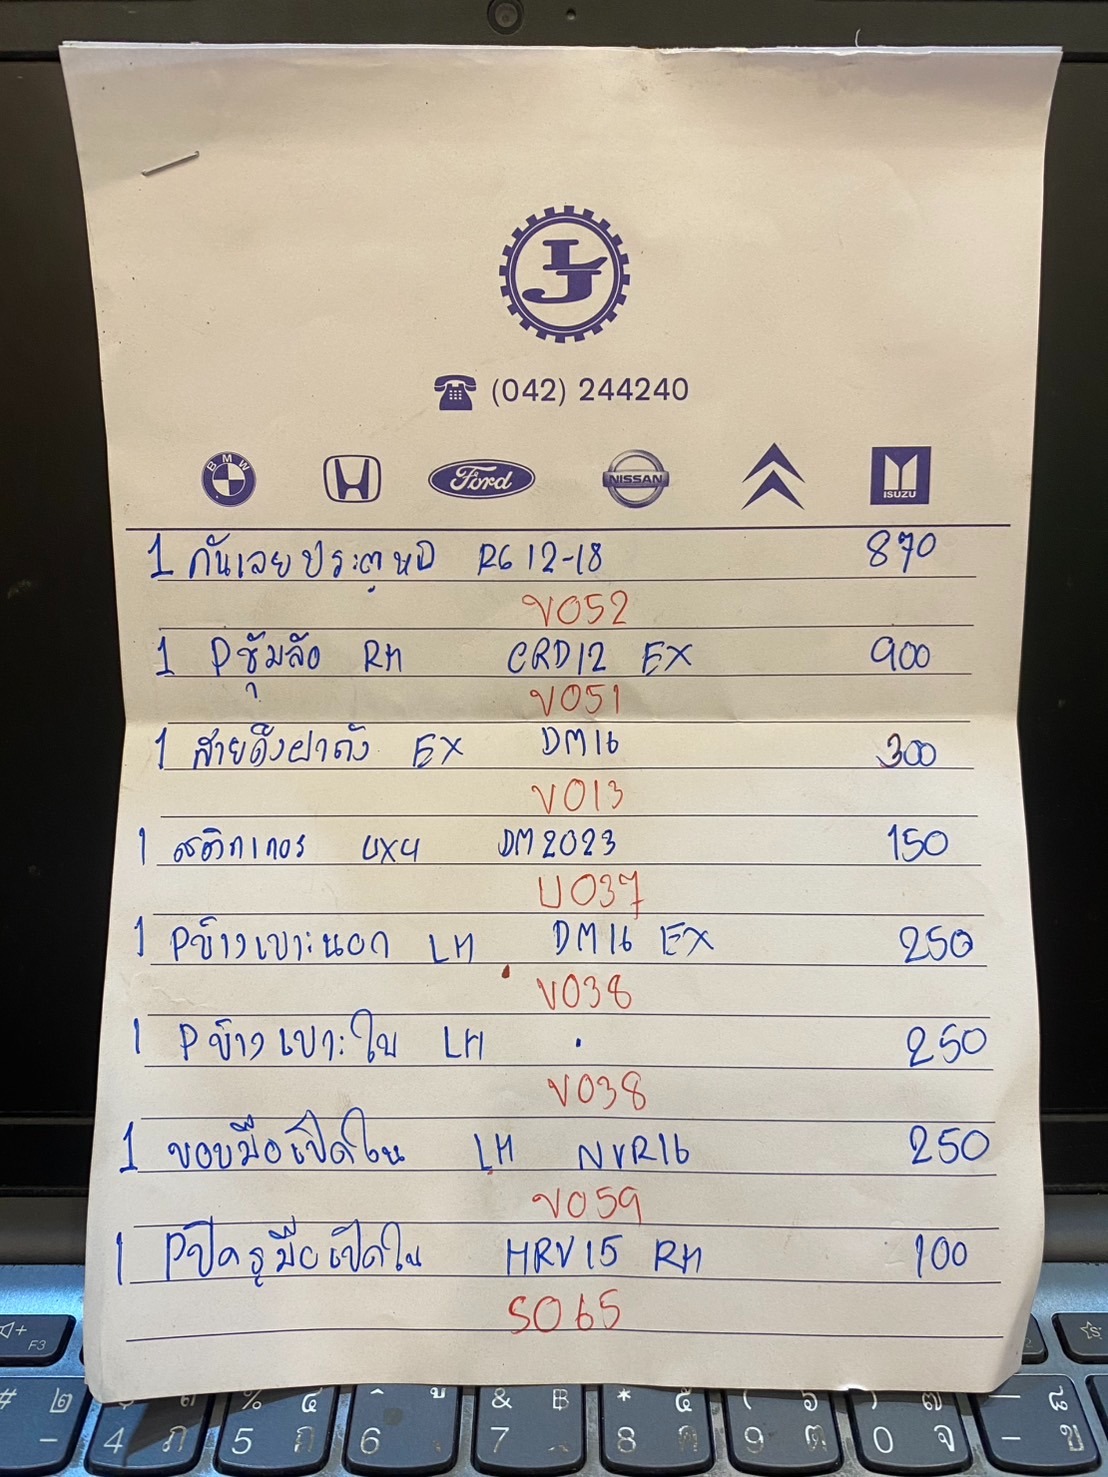 LJ
(042) 244240
BMW Ford NISSAN ISUZU
1 กันเลยประตูหน้ RG 12-18 870
V052
1 Pซุ้มล้อ RH CRD12 EX 900
V051
1 สายดึงฝาถัง EX DM16 300
V013
1 สติกเกอร 4X4 DM2023 150
U037
1 Pข้างเบาะนอก LH DM16 EX 250
V038
1 Pข้างเบาะใน LH 250
V038
1 ขอบมือเปิดใน LH NVR16 250
V059
1 Pปิดรูมือเปิดใน HRV15 RH 100
S065
F3
# ๒ ๓ % ๔ ู ฿ & * ๕ ( ๖ ) ๗ _ ๘
- 4 ภ 5 ถ 6 7 8 ค 9 ต 0 จ - ข